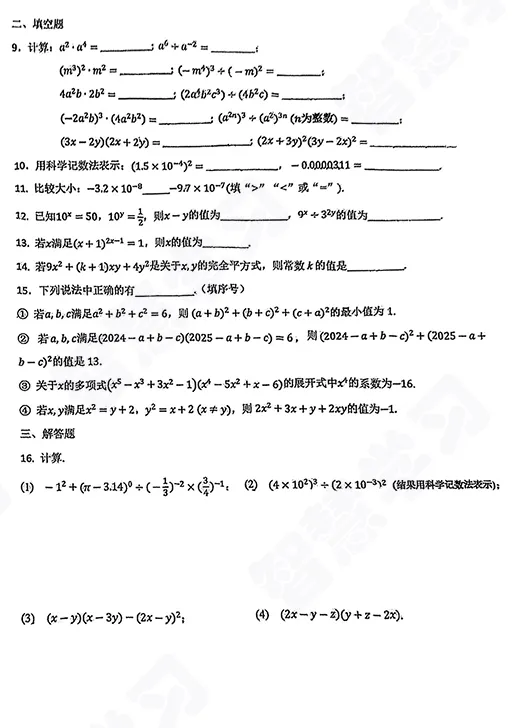 二、填空题
9．计算：a²·a⁴ = ________；a⁶ ÷ a⁻² = ________；
(m³)²·m² = ________；(−m⁴)³ ÷ (−m)² = ________；
4a²b·2b² = ________；(2a⁴b²c³) ÷ (4b²c) = ________；
(−2a²b)³·(4a²b²) = ________；(a²ⁿ)³ ÷ (a²)³ⁿ (n为整数) = ________；
(3x − 2y)(2x + 2y) = ________；(2x + 3y)²(3y − 2x)² = ________．
10．用科学记数法表示：(1.5 × 10⁻⁴)² = ________，−0.0000311 = ________．
11．比较大小：−3.2 × 10⁻⁸____−9.7 × 10⁻⁷(填“>”“<”或“=”)．
12．已知10ˣ = 50，10ʸ = 1/2，则x − y的值为________，9ˣ ÷ 3²ʸ的值为________．
13．若x满足(x + 1)²ˣ⁻¹ = 1，则x的值为________．
14．若9x² + (k + 1)xy + 4y²是关于x, y的完全平方式，则常数k的值是________．
15．下列说法中正确的有________．（填序号）
① 若a, b, c满足a² + b² + c² = 6，则 (a + b)² + (b + c)² + (c + a)²的最小值为 1.
② 若a, b, c满足(2024 − a + b − c)(2025 − a + b − c) = 6，则 (2024 − a + b − c)² + (2025 − a +
b − c)²的值是 13.
③ 关于x的多项式(x⁵ − x³ + 3x² − 1)(x⁴ − 5x² + x − 6)的展开式中x⁴的系数为−16.
④ 若x, y满足x² = y + 2，y² = x + 2 (x ≠ y)，则 2x² + 3x + y + 2xy的值为−1.
三、解答题
16．计算.
(1) −1² + (π − 3.14)⁰ ÷ (−1/3)⁻² × (3/4)⁻¹； (2) (4 × 10²)³ ÷ (2 × 10⁻³)² (结果用科学记数法表示)；
(3) (x − y)(x − 3y) − (2x − y)²； (4) (2x − y − z)(y + z − 2x).